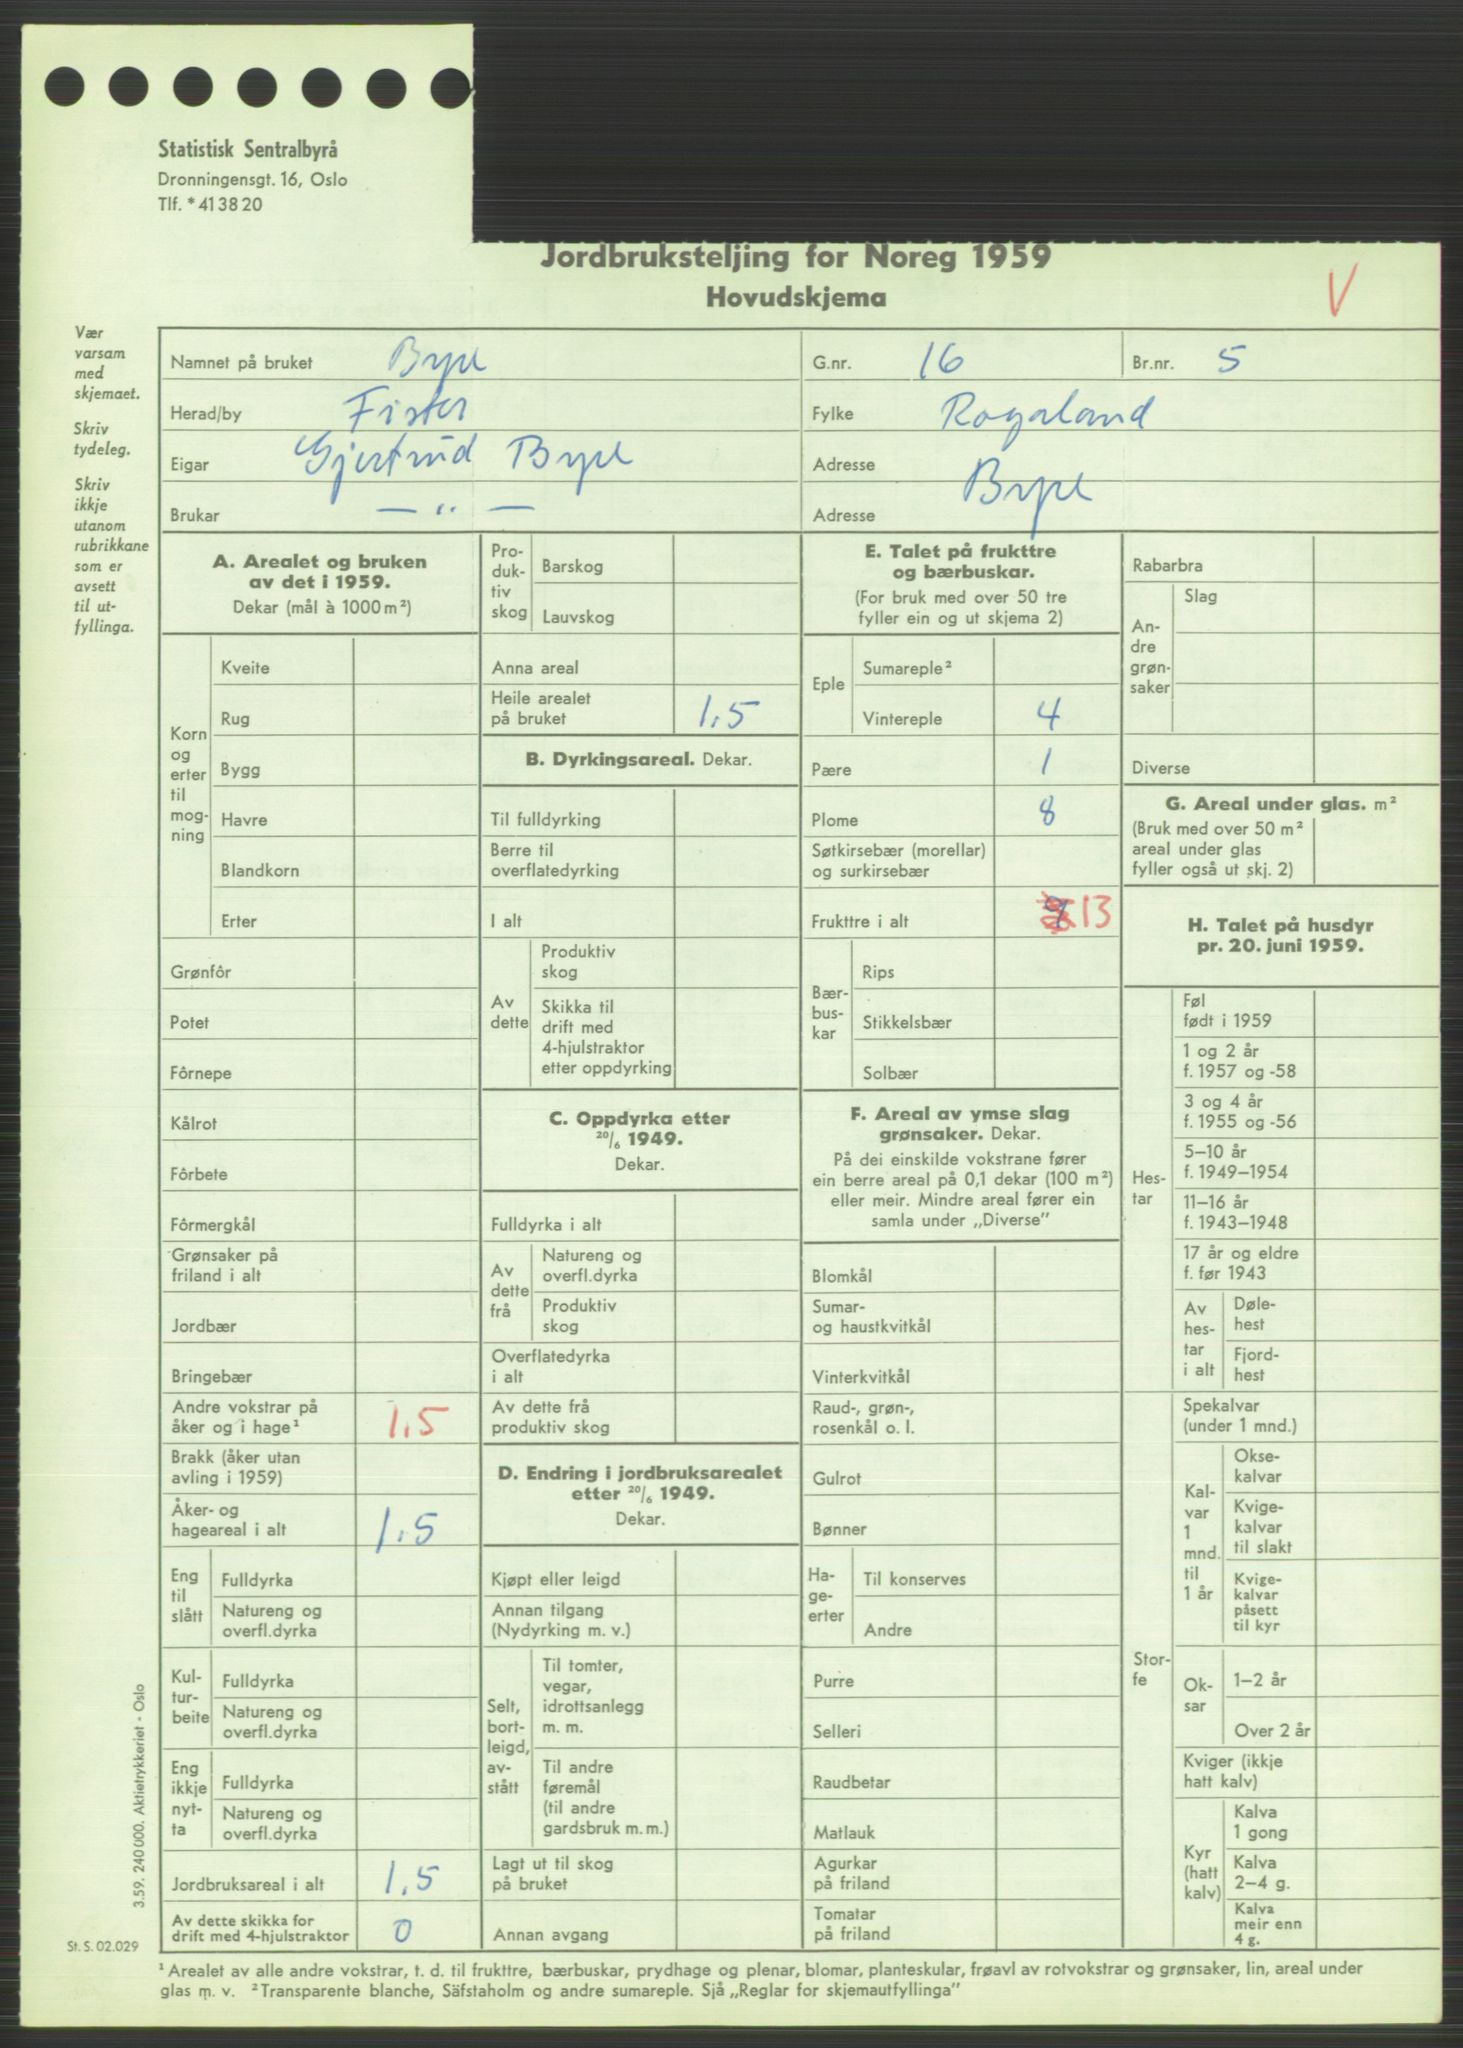 Statistisk Sentralbyrå
Dronningensgt. 16, Oslo
Tlf. * 41 38 20
Jordbruksteljing for Noreg 1959
Hovudskjema
V
Vær
varsam
med
skjemaet.
Skriv
tydeleg.
Skriv
ikkje
utanom
rubrikkane
som er
avsett
til ut-
fyllinga.
Namnet på bruket Bype G.nr. 16 Br.nr. 5
Herad/by Fister Fylke Rogaland
Eigar Gjertrud Bype Adresse
Brukar — " — Adresse Bype
A. Arealet og bruken
av det i 1959.
Dekar (mål à 1000 m²)
Korn
og
erter
til
mog-
ning
Kveite
Rug
Bygg
Havre
Blandkorn
Erter
Grønfôr
Potet
Fôrnepe
Kålrot
Fôrbete
Fôrmergkål
Grønsaker på
friland i alt
Jordbær
Bringebær
Andre vokstrar på
åker og i hage¹ 1,5
Brakk (åker utan
avling i 1959)
Åker- og
hageareal i alt 1.5
Eng
til
slått
Fulldyrka
Natureng og
overfl.dyrka
Kul-
tur-
beite
Fulldyrka
Natureng og
overfl.dyrka
Eng
ikkje
nyt-
ta
Fulldyrka
Natureng og
overfl.dyrka
Jordbruksareal i alt 1.5
Av dette skikka for
drift med 4-hjulstraktor 0
Pro-
duk-
tiv
skog
Barskog
Lauvskog
Anna areal
Heile arealet
på bruket 1.5
B. Dyrkingsareal. Dekar.
Til fulldyrking
Berre til
overflatedyrking
I alt
Av
dette
Produktiv
skog
Skikka til
drift med
4-hjulstraktor
etter oppdyrking
C. Oppdyrka etter
20/6 1949.
Dekar.
Fulldyrka i alt
Av
dette
frå
Natureng og
overfl.dyrka
Produktiv
skog
Overflatedyrka
i alt
Av dette frå
produktiv skog
D. Endring i jordbruksarealet
etter 20/6 1949.
Dekar.
Kjøpt eller leigd
Annan tilgang
(Nydyrking m. v.)
Selt,
bort-
leigd,
av-
stått
Til tomter,
vegar,
idrottsanlegg
m. m.
Til andre
føremål
(til andre
gardsbruk m. m.)
Lagt ut til skog
på bruket
Annan avgang
E. Talet på frukttre
og bærbuskar.
(For bruk med over 50 tre
fyller ein og ut skjema 2)
Eple
Sumareple²
Vintereple 4
Pære 1
Plome 8
Søtkirsebær (morellar)
og surkirsebær
Frukttre i alt 13
Bær-
bus-
kar
Rips
Stikkelsbær
Solbær
F. Areal av ymse slag
grønsaker. Dekar.
På dei einskilde vokstrane fører
ein berre areal på 0,1 dekar (100 m²)
eller meir. Mindre areal fører ein
samla under „Diverse”
Blomkål
Sumar-
og haustkvitkål
Vinterkvitkål
Raud-, grøn-,
rosenkål o. l.
Gulrot
Bønner
Ha-
ge-
erter
Til konserves
Andre
Purre
Selleri
Raudbetar
Matlauk
Agurkar
på friland
Tomatar
på friland
Rabarbra
An-
dre
grøn-
saker
Slag
Diverse
G. Areal under glas. m²
(Bruk med over 50 m²
areal under glas
fyller også ut skj. 2)
H. Talet på husdyr
pr. 20. juni 1959.
Hes-
tar
Føl
født i 1959
1 og 2 år
f. 1957 og -58
3 og 4 år
f. 1955 og -56
5–10 år
f. 1949–1954
11–16 år
f. 1943–1948
17 år og eldre
f. før 1943
Av
hes-
tar
i alt
Døle-
hest
Fjord-
hest
Stor-
fe
Spekalvar
(under 1 mnd.)
Kal-
var
1
mnd.
til
1 år
Okse-
kalvar
Kvige-
kalvar
til slakt
Kvige-
kalvar
påsett
til kyr
Ok-
sar
1–2 år
Over 2 år
Kviger (ikkje
hatt kalv)
Kyr
(hatt
kalv)
Kalva
1 gong
Kalva
2–4 g.
Kalva
meir enn
4 g.
3.59. 240 000. Aktietrykkeriet - Oslo
St. S. 02.029
¹ Arealet av alle andre vokstrar, t. d. til frukttre, bærbuskar, prydhage og plenar, blomar, planteskular, frøavl av rotvokstrar og grønsaker, lin, areal under
glas m. v. ² Transparente blanche, Säfstaholm og andre sumareple. Sjå „Reglar for skjemautfyllinga”